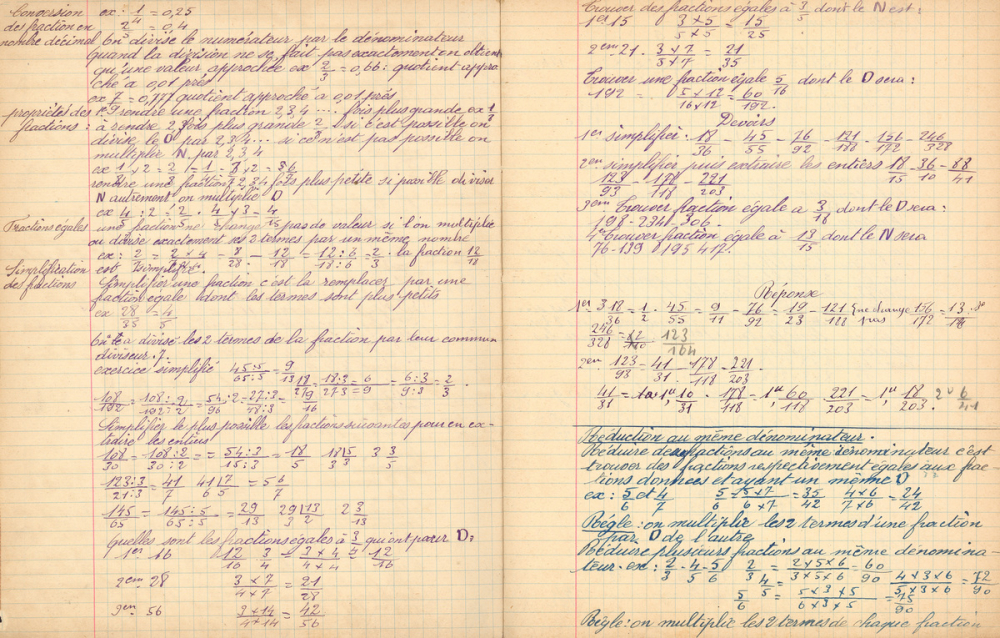 Conversion des fraction en nombre décimal
ex: 1/4 = 0,25
2/4 = 0,4
On divise le numérateur par le dénominateur
quand la division ne se fait pas exactement on obtient
qu'une valeur approchée ex 2/3 = 0,66: quotient appro-
ché à 0,01 près
ex 7/9 = 0,777 quotient approché à 0,01 près
propriétés des fractions:
1er rendre une fraction 2,3,4 ... fois plus grande, ex 1/8
à rendre 2 fois plus grande si c'est possible on
divise le D par 2,3,4 ... si ce n'est pas possible on
multiplie N par 2,3,4
rendre une fraction 2,3,4 fois plus petite si possible diviser
N autrement on multiplie D
ex 4 : 2 = 2
Fractions égales
une fraction ne change pas de valeur si l'on multiplie
ou divise exactement ses 2 termes par un même nombre
la fraction 12/18
est simplifiée.
Simplification des fractions
Simplifier une fraction c'est la remplacer par une
fraction égale dont les termes sont plus petits
ex 28/35 = 4/5
On a divisé les 2 termes de la fraction par leur commun
diviseur 7.
exercice simplifié 45:5/65:5 = 9/13 18/27 = 18:3/27:3 = 6/9 = 6:3/9:3 = 2/3
108/192 = 108:2/192:2 = 54:2/96 = 27:3/48:3 = 9/16
Simplifier le plus possible les fractions suivantes pour en ex-
traire les entiers
108/30 = 108:2/30:2 = 54:3/15:3 = 18/5 18|5 3 3 3 3/5
123:3/21:3 = 41/7 41|7 6 5 = 5 6/7
145/65 = 145:5/65:5 = 29/13 29|13 3 2 2 3/13
Quelles sont les fractions égales à 3/4 qui ont pour D:
1er 16 12/16 3/4 = 3×4/4×4 = 12/16
2em 28 3×7/4×7 = 21/28
3em 56 3×14/4×14 = 42/56
Trouver des fractions égales à 3/5 dont le N est:
1er 15 3×5/5×5 = 15/25
2em 21. 3×7/5×7 = 21/35
Trouver une fraction égale 5/16 dont le D sera:
192 = 5×12/16×12 = 60/192.
Devoirs
1er simplifier. 18/36 - 45/55 - 76/92 - 121/188 - 156/172 - 246/328
2em simplifier puis extraire les entiers 18/15 - 36/10 - 88/41
123/93 - 178/118 - 221/203
3em Trouver fraction égale à 3/18 dont le D sera:
198 - 234 - 306
4e trouver fraction égale à 13/15 dont le N sera
76-139 195 417.
Réponse
1er 18/36 = 1/2 . 45/55 = 9/11 - 76/92 = 19/23 - 121/188 ne change pas
246/328 123/164
2em 123/93 = 41/31 - 178/118 - 221/203
41/31 = 1u 10/31 . 178/118 = 1u 60/118 . 221/203 = 1u 18/203.
Réduction au même dénominateur.
Réduire des fractions au même dénominateur c'est
trouver des fractions respectivement égales aux frac-
tions données et ayant un même D
ex: 5/6 et 4/7 5×7/6×7 = 35/42 4×6/7×6 = 24/42
Règle: on multiplie les 2 termes d'une fraction
par D de l'autre
Réduire plusieurs fractions au même dénomina-
teur. ex: 2/3 . 4/5 . 5/6 2/3 = 2×5×6/3×5×6 = 60/90
4/5 = 4×3×6/5×3×6 = 72/90
5/6 = 5×3×5/6×3×5 = 75/90
Règle: on multiplie les 2 termes de chaque fraction